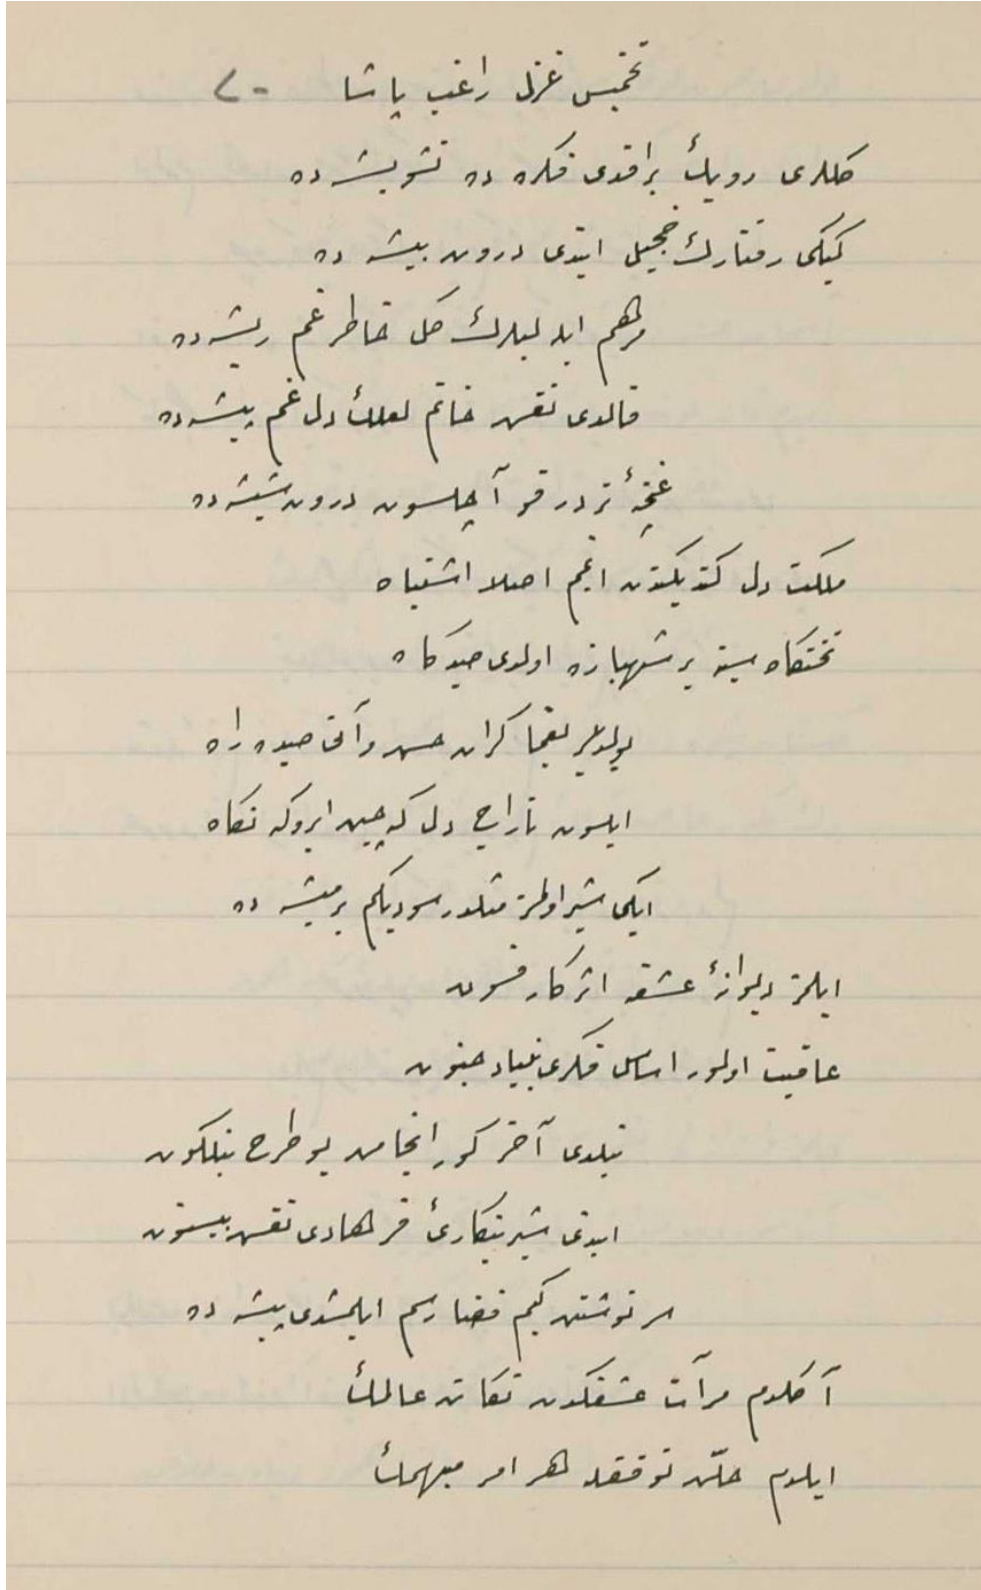 تخمیس غزل راغب پاشا -
كللری رویك براقدی فكره ده تشویشده
كبكی رفتارك خجیل ایتدی درون بیشه ده
مرهم ایله لبلرك كل خاطر غم ریشه ده
قالدی نقش خاتم لعلك دل غم پیشه ده
غنچهٔ تردر قو آچلسون درون شیشه ده
ملكت دل كندیكندن ایتم اصلا اشتباه
تختكاه سینه بر شهبازه اولدی صیدكاه
بولدیلر یغماكران حسن و آن صیده راه
ایلسون تاراج دل كه چین ابرو كه نكاه
ایكی شیر اولمز مثلدر سودیكم بر میشه ده
ایلمز دیوانهٔ عشقه اثر كار فسون
عاقبت اولور اساس فكری بنیاد جنون
نیلدی آخر كور انجامن بو طرح نیلكون
ایتدی شیرینكارئ فرهادی نقش بیستون
سرنوشتن كیم قضا رسم ایلمشدی پیشه ده
آكلدم مرآت عشقكدن نكاتن عالمك
ایلدم حلّن توققله هر امر مبهمك